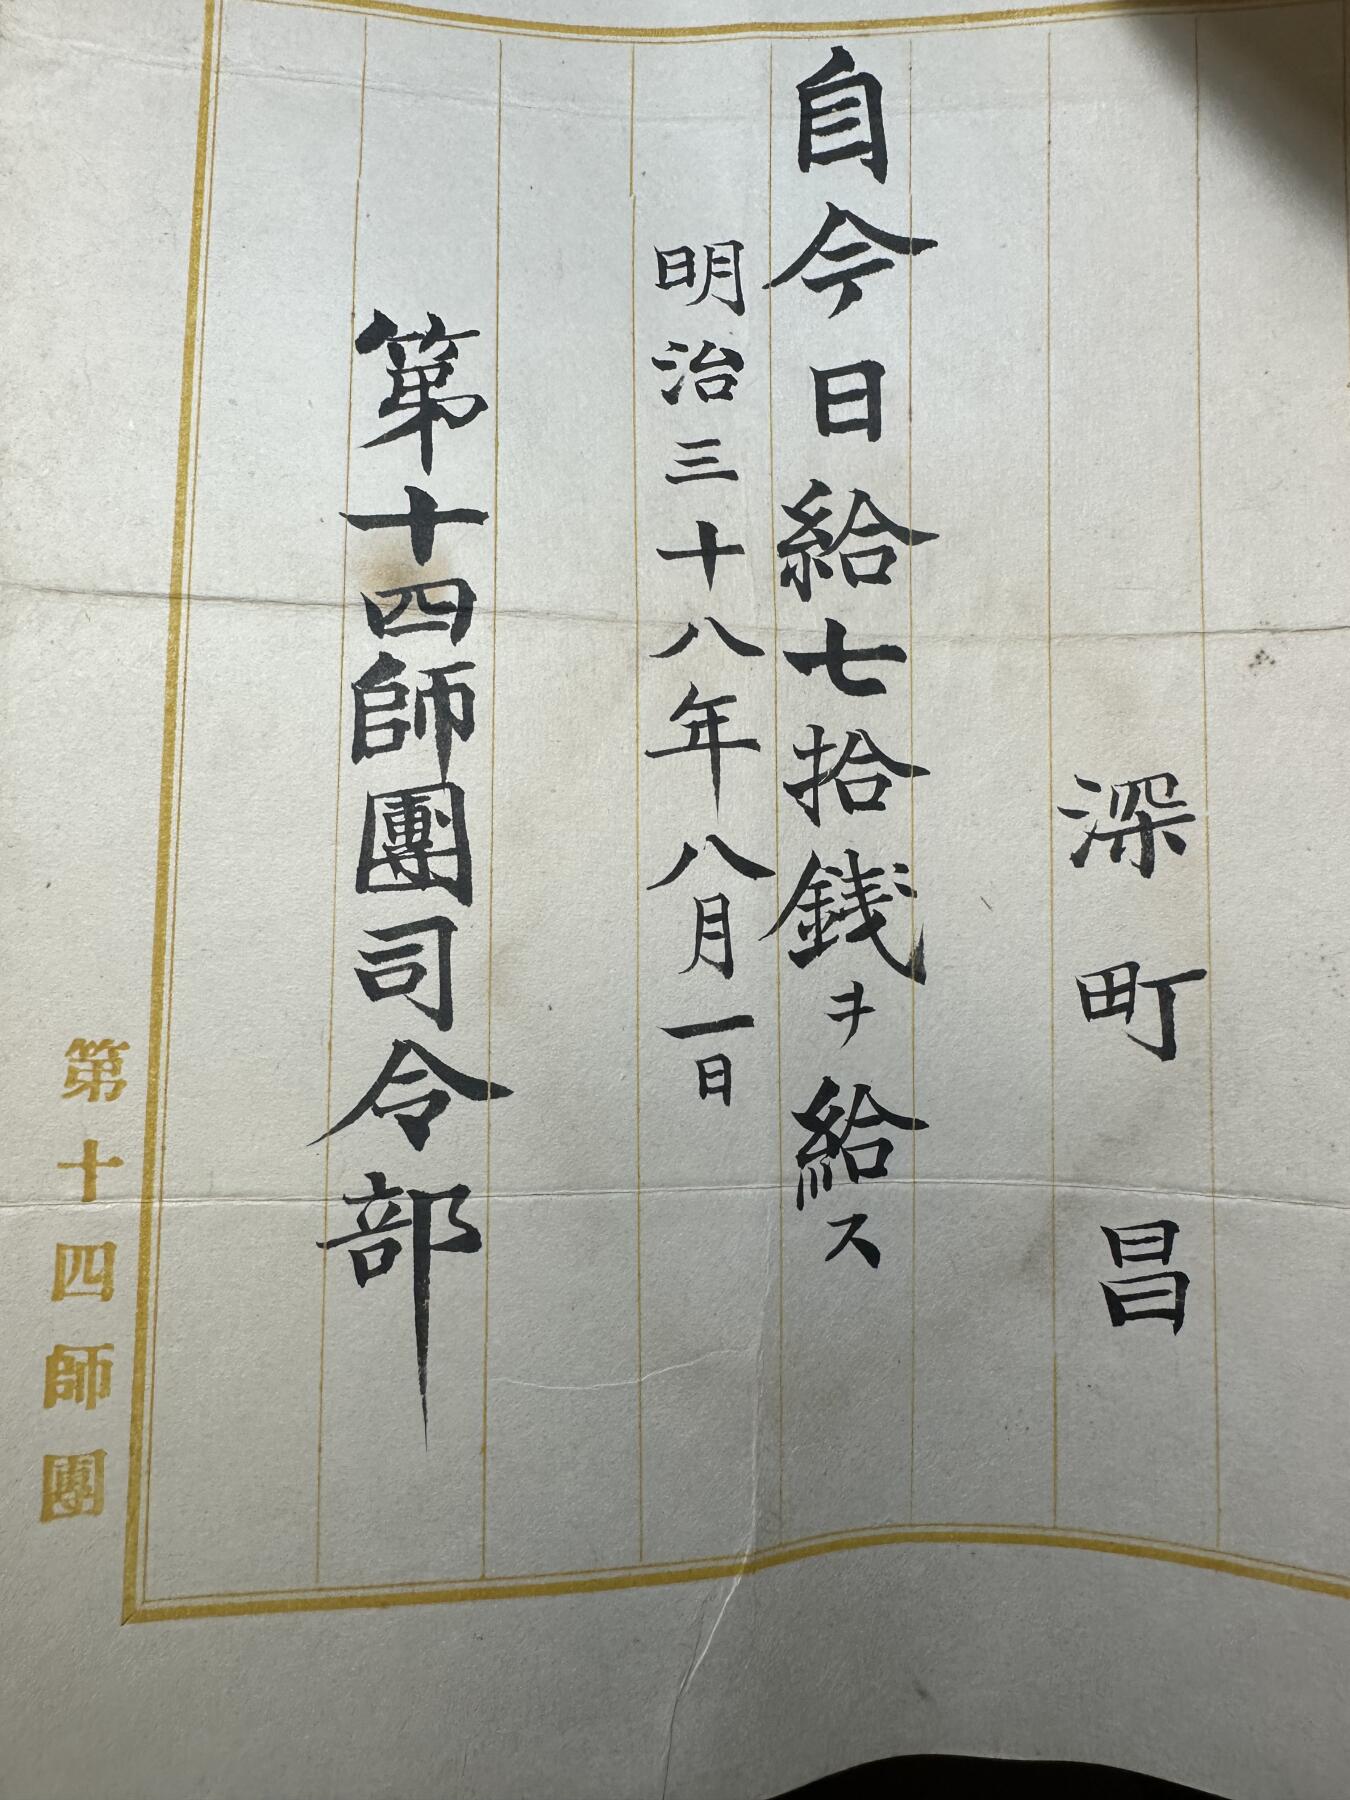 深町昌
自今日給七拾銭ヲ給ス
明治三十八年八月一日
第十四師團司令部
第十四師團